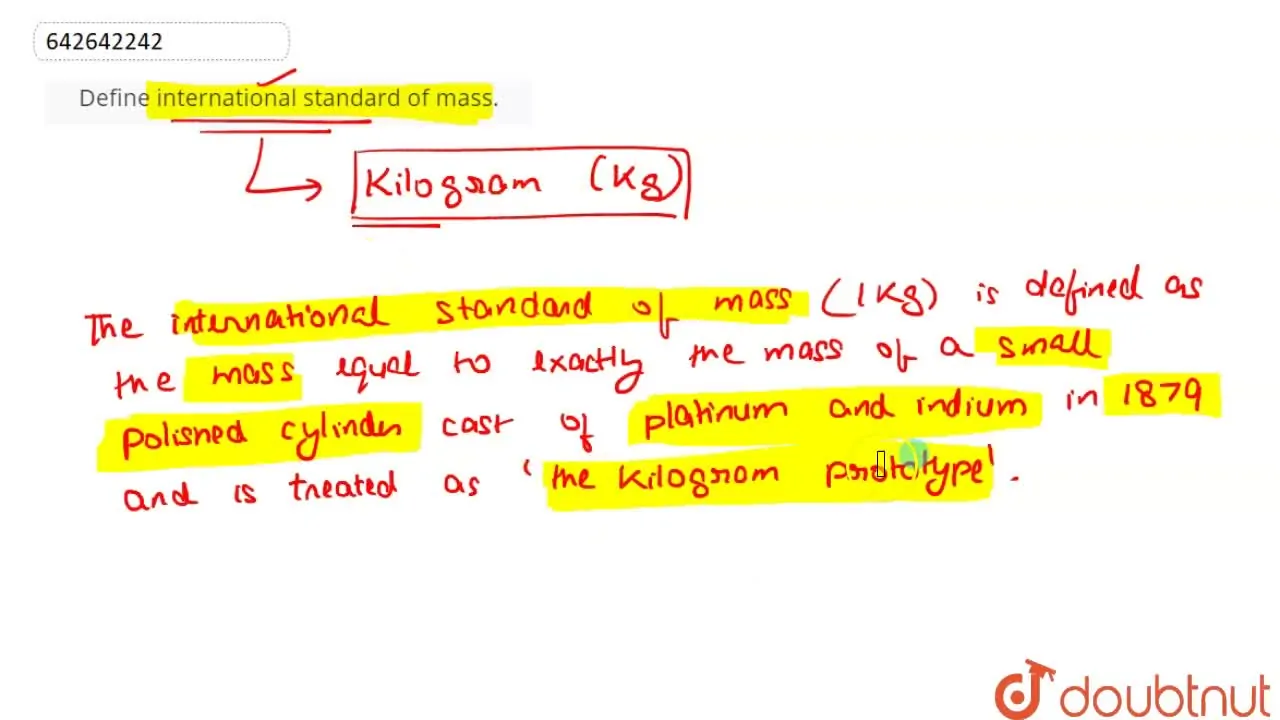 642642242
Define international standard of mass.
Kilogram (Kg)
The international standard of mass (1Kg) is defined as
the mass equal to exactly the mass of a small
polished cylinder cast of platinum and indium in 1879
and is treated as 'the kilogram prototype'.
doubtnut